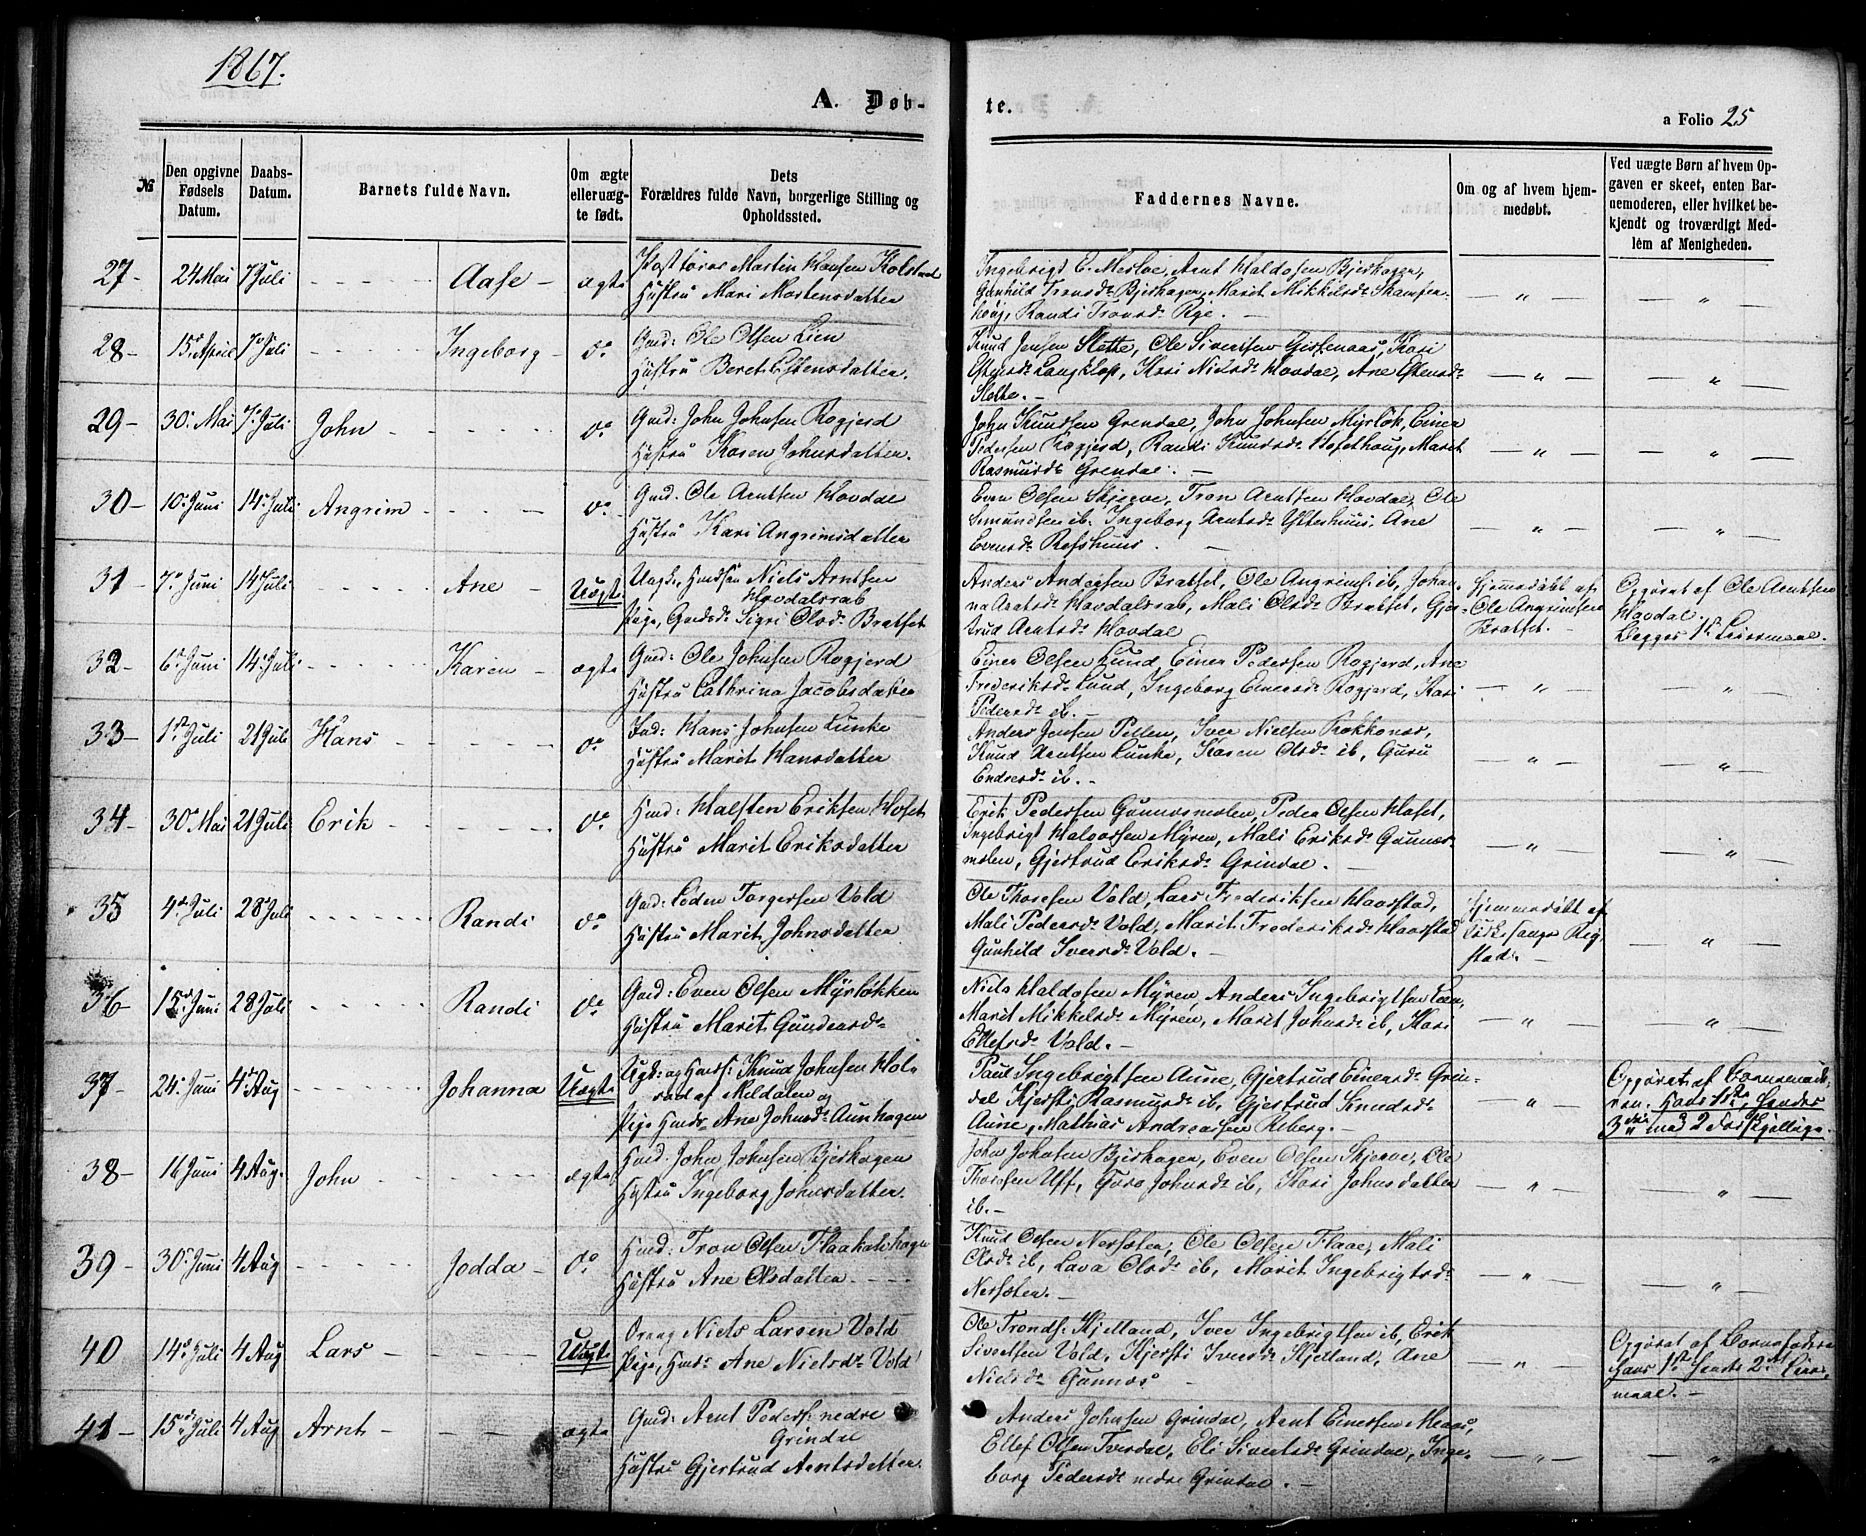 1867.
A. Døb-
te.
a Folio 25
№
Den opgivne Fødsels Datum.
Daabs-Datum.
Barnets fulde Navn.
Om ægte eller uægte født.
Dets Forældres fulde Navn, borgerlige Stilling og Opholdssted.
Faddernes Navne.
Om og af hvem hjemmedøbt.
Ved uægte Børn af hvem Opgaven er skeet, enten Barnemoderen, eller hvilket bekjendt og troværdigt Medlem af Menigheden.
27 - 24 Mai 7 Juli Aase - ægte
Martin Hansen Kolstad
Hustru Mari Mortensdatter
Gunhild Tronsd. Bjerkagen, Marit Mikkelsd.
høug, Randi Tronsd. Rye. -
28 - 15 April 7 Juli Ingeborg - do
Gmd: Ole Olsen Lien
Hustru Beret Estensdatter.
Knud Jensen Slette, Ole Sivertsen Gissenaas, Kari
Langklop, Kari Nielsd. Hovdal, Ane Estensd.
Slette. -
29 - 30 Mai 7 Juli John do
Gmd: John Johnsen Rogjerd
Hustru Karen Johnsdatter.
John Knudsen Grendal, John Johnsen Myrløk, Einer
Pedersen Rogjerd, Randi Knudsd. Hofethoug, Marit
Rasmusd. Grendal. -
30 - 10 Juni 14 Juli Angrim do
Gmd: Ole Arntsen Hovdal
Hustru Kari Angrimsdatter
Even Olsen Skjerve, Tron Arntsen Hovdal, Ole
Smundsen ib. Ingeborg Arntsd. Ystenhuus, Ane
Evensd. Refshuus. -
31 - 7 Juni 14 Juli Ane - Uægte
Niels Arntsen
Hovdalsrab
Pige, Gmdsd. Sigri Olsd. Bratset
Anders Andersen Bratset, Ole Angrims. ib, Johan-
na Arntsd. Hovdalsrab, Mali Olsd. Bratset, Gjer-
trud Arntsd. Hovdal
Hjemmedøbt af
Ole Angrimsen
Bratset.
Opgivet af Ole Arntsen
Hovdal.
Begges 1ste Leiermaal.
32 - 6 Juni 14 Juli Karen - ægte
Gmd: Ole Johnsen Rogjerd
Hustru Cathrina Jacobsdatter
Einer Olsen Lund, Einer Pedersen Rogjerd, Ane
Frederiksd. Lund, Ingeborg Einersd. Rogjerd, Kari
Pedersd. ib. -
33 - 1 Juli 21 Juli Hans do
Ind: Hans Johnsen Lunke
Hustru Marit Hansdatter
Anders Jensen Pellen, Iver Nielsen Rokkones,
Knud Arntsen Lunke, Karen Olsd. ib, Guru
Endresd. ib. -
34 - 30 Mai 21 Juli Erik do
Hmd: Halsten Eriksen Hoset
Hustru Marit Eriksdatter
Erik Pedersen Gunnesmolen, Peder Olsen Hoset,
Ingebrigt Halvorsen Myren, Mali Eriksd. Gunnes-
molen, Gjertrud Eriksd. Grindal. -
35 4 Juli 28 Juli Randi do
Gmd: Loden Torgersen Vold
Hustru Marit Johnsdatter
Ole Thoresen Vold, Lars Frederiksen Haarstad,
Mali Pedersd. Vold, Marit Frederiksd. Haarstad
Gunhild Iversd. Vold. -
Hjemmedøbt af
Kirkesanger Rig-
stad. -
36 - 15 Juni 28 Juli Randi do
Gmd: Even Olsen Myrløkken
Hustru Marit Gundersd.
Niels Haldosen Myren, Anders Ingebrigtsen
Marit Mikkelsd. Myren, Marit Johnsd. ib, Kari
Ellefsd. Vold. -
37 - 24 Juni 4 Aug Johanna Uægte
Ugk: og Gmds: Knud Johnsen Hol-
Meldalen og
Pige Hmds. Ane Johnsd. Aunhagen
Paul Ingebrigtsen Aune, Gjertrud Einersd. Grin-
dal Kjersti Rasmusd. ib, Gjertrud
Aune, Mathias Andreassen Reberg. -
Opgivet af Barnemode-
ren. Hans 1ste, Hendes
3die med 2 Forskjellige.
38 - 16 Juni 4 Aug. John ægte
Hmd: John Johnsen Bjerkagen
Hustru Ingeborg Johnsdatter.
John Johnsen Bjerkagen, Even Olsen Skjerve, Ole
Thoresen Uff, Toro Johnsd. ib, Kari Johnsdatter
ib. -
39 - 30 Juni 4 Aug Jodda - do
Hmd: Tron Olsen Flaakalshagen
Hustru Ane Olsdatter
Knud Olsen Nersæter, Ole Olsen Flaae, Mali
Olsd. ib, Lava Olsd. ib, Marit Ingebrigtsd.
Nersæter. -
40 14 Juli 4 Aug Lars Uægt
Niels Larsen Vold
Pige, Hmds. Ane Nielsd. Vold
Ole Tronds. Kjelland, Iver Ingebrigtsen ib, Erik
Sivertsen Vold, Kjersti Iversd. Kjelland, Ane
Nielsd. Gunnes -
Opgivet af Barnefaderen
Hans 1ste Hendes 2det Leier-
maal. -
41 - 15 Juli 4 Aug Arnt ægte
Gmd: Arnt Peders. nedre
Grindal
Hustru Gjertrud Arntsdatter.
Anders Johnsen Grindal, Arnt Einersen Meaas,
Ellef Olsen Tverdal, Eli Sivertsd. Grindal, Inge-
borg Pedersd. nedre Grindal. -